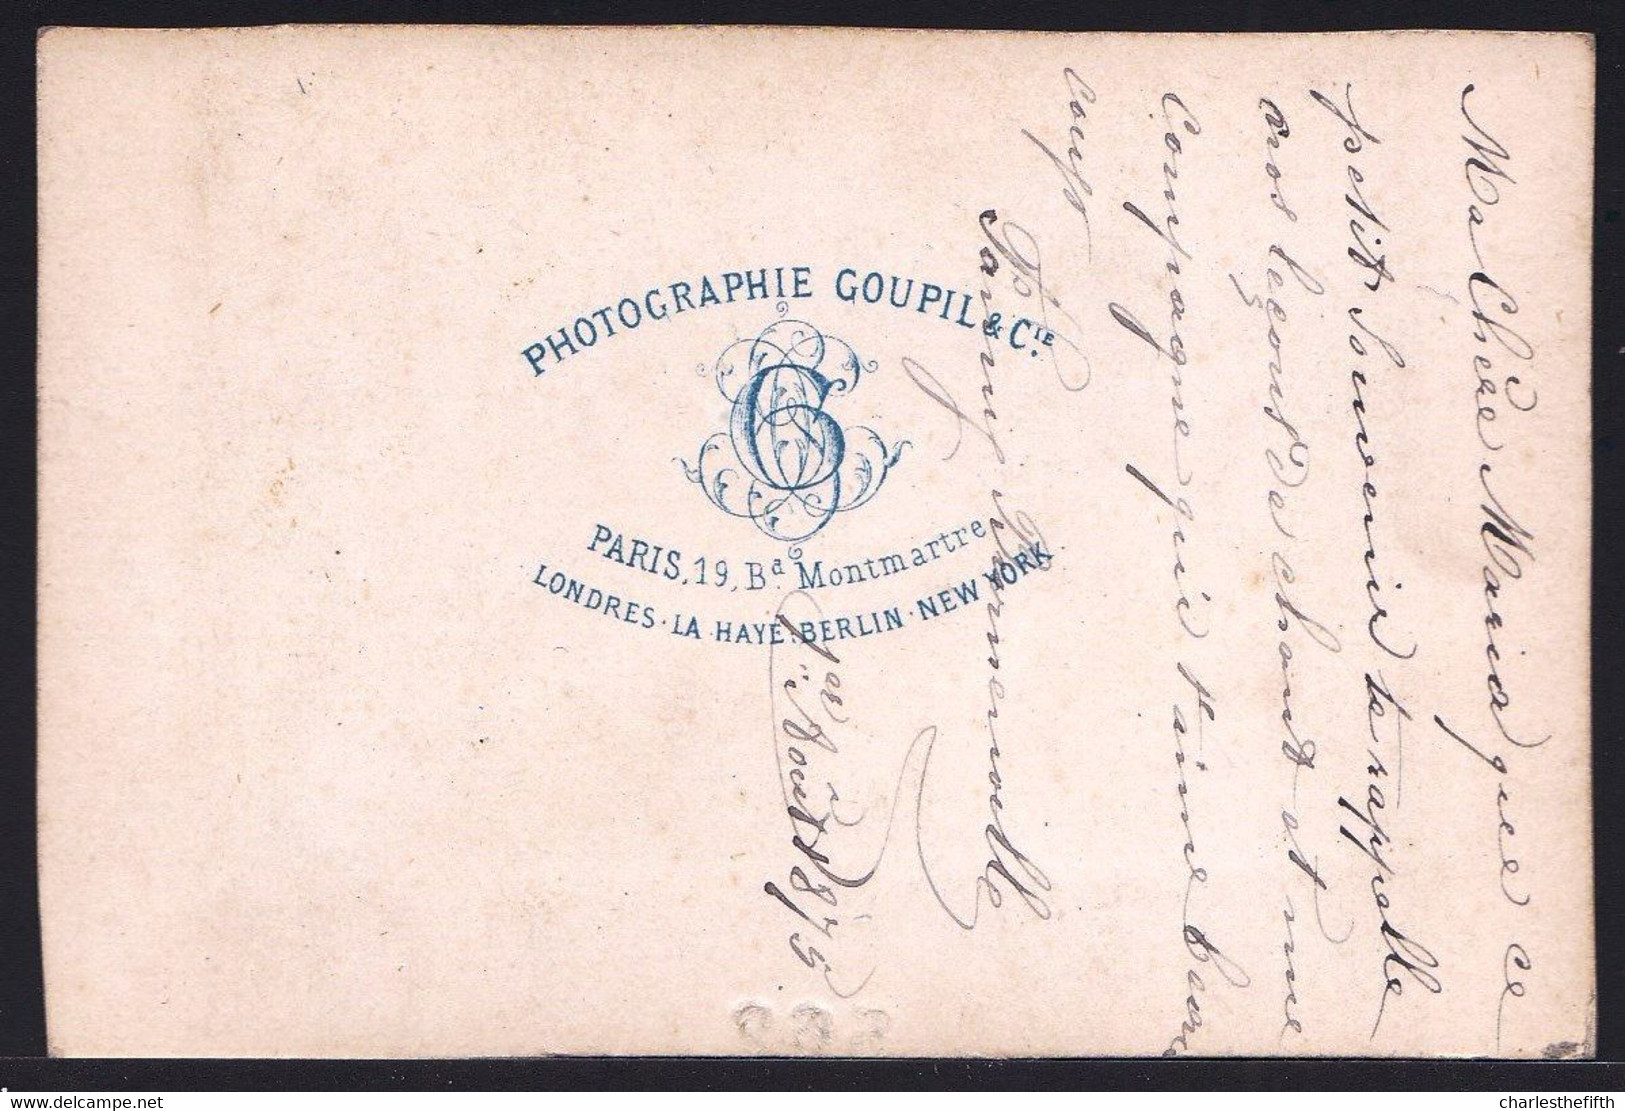 PHOTOGRAPHIE GOUPIL & CIE.
PARIS, 19, Bd Montmartre
LONDRES · LA HAYE · BERLIN · NEW YORK
Ma Chère Maria que ce
petit Souvenir te rappelle
nos leçons de chant et une
Compagne qui t'aime beau
coup
Fanny
1er Août 1875
charlesthefifth